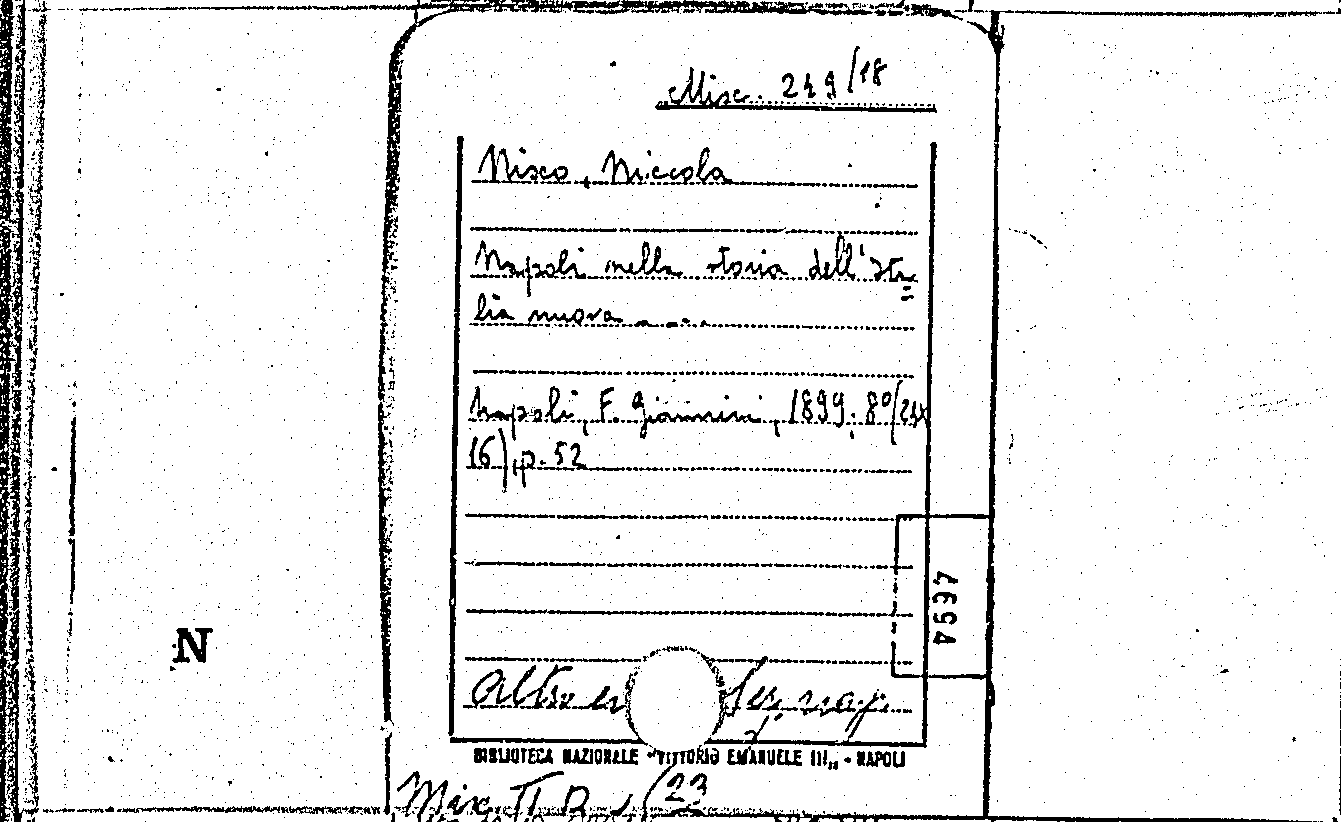 Misc. 249/18
Nisco, Niccola
Napoli nella storia dell'Ita=
lia nuova ....
Napoli, F. Giannini, 1899; 8º(24x
16), p. 52
4694
N
Altro
BIBLIOTECA NAZIONALE "VITTORIO EMANUELE III„ - NAPOLI
(23